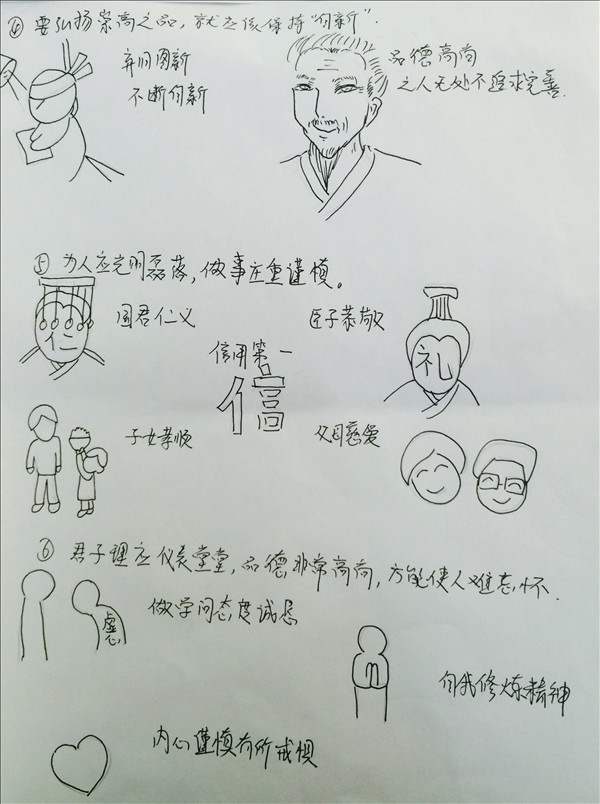 ④ 要弘扬崇高之品，就应该保持“自新”.
弃旧图新
不断自新
品德高尚
之人无处不追求完善.
⑤ 为人应光明磊落，做事庄重谨慎。
国君仁义
臣子恭敬
仁
礼
信用第一
信
子女孝顺
父母慈爱
⑥ 君子理应仪表堂堂，品德非常高尚，方能使人难忘怀.
做学问态度诚恳
虚心
自我修炼精神
内心谨慎有所戒惧